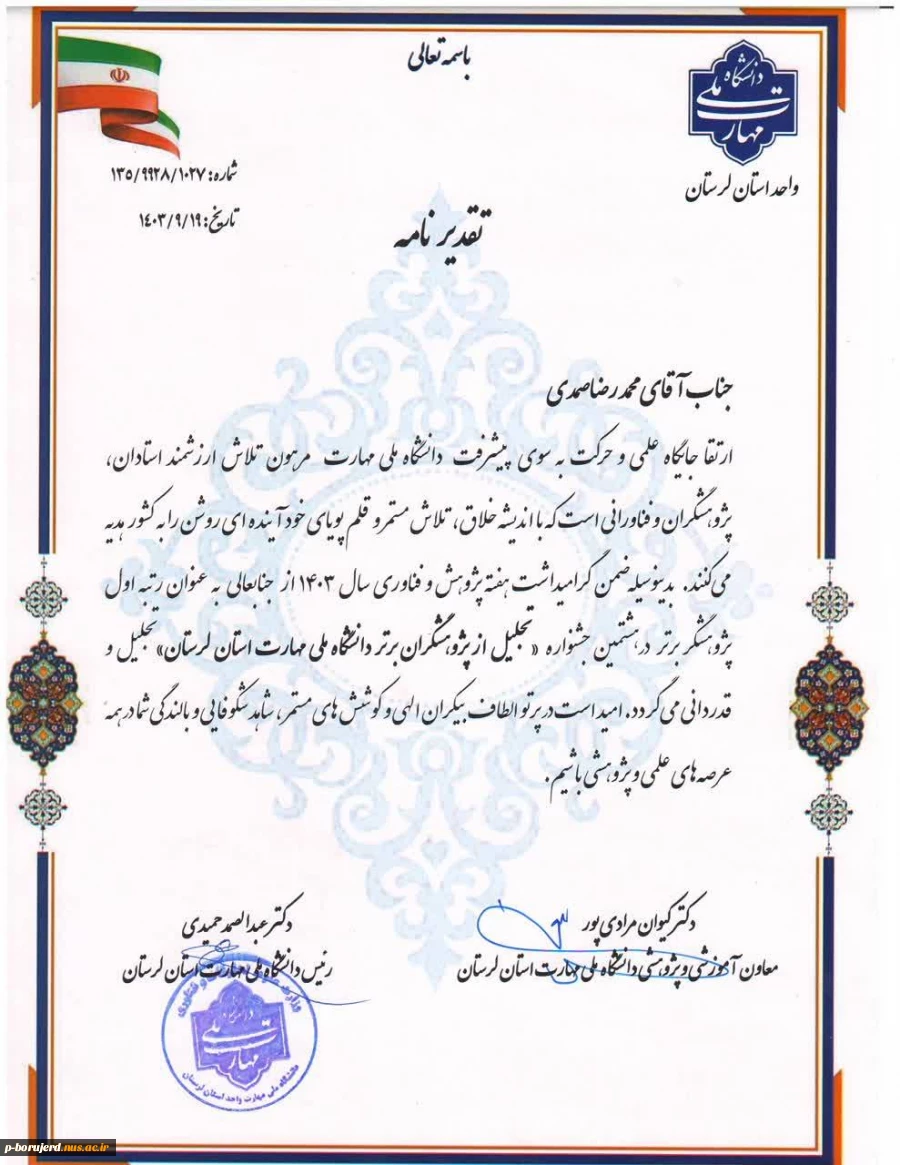 باسمه تعالی
دانشگاه
ملی
مهارت
واحد استان لرستان
شماره: ۱۳۵/۹۹۲۸/۱۰۲۷
تاریخ: ۱۴۰۳/۹/۱۹
تقدیر نامه
جناب آقای محمدرضا صمدی
ارتقا جایگاه علمی و حرکت به سوی پیشرفت دانشگاه ملی مهارت مرهون تلاش ارزشمند استادان،
پژوهشگران و فناورانی است که با اندیشه خلاق، تلاش مستمر و قلم پویای خود آینده ای روشن را به کشور هدیه
می کنند. بدینوسیله ضمن گرامیداشت هفته پژوهش و فناوری سال ۱۴۰۳ از جنابعالی به عنوان رتبه اول
پژوهشگر برتر در هشتمین جشنواره « تجلیل از پژوهشگران برتر دانشگاه ملی مهارت استان لرستان» تجلیل و
قدردانی می گردد. امید است در پرتو الطاف بیکران الهی و کوشش های مستمر، شاهد شکوفائی و بالندگی شما در همه
عرصه های علمی و پژوهشی باشیم.
دکتر کیوان مرادی پور
معاون آموزشی و پژوهشی دانشگاه ملی مهارت استان لرستان
دکتر عبدالصمد حمیدی
رئیس دانشگاه ملی مهارت استان لرستان
دانشگاه
ملی
مهارت
دانشگاه ملی مهارت واحد استان لرستان
p-borujerd.nus.ac.ir